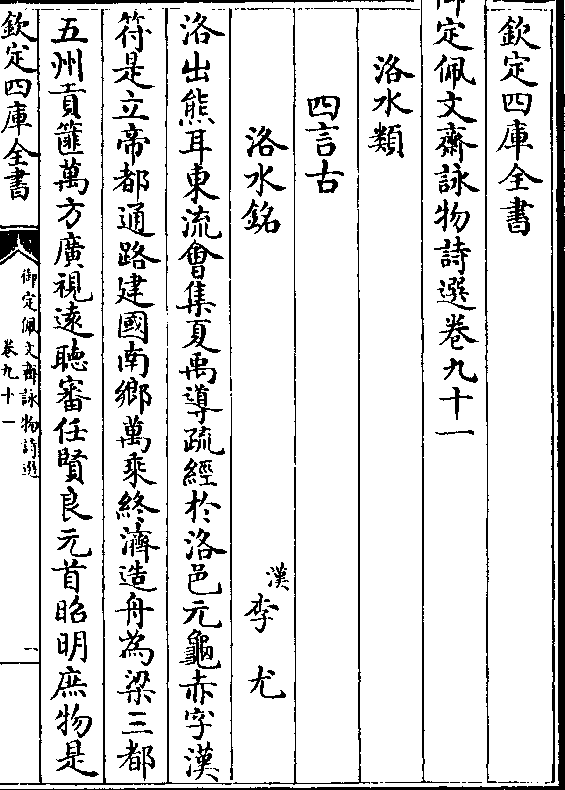 欽定四庫全書
御定佩文齋詠物詩選卷九十一
洛水類
四言古
洛水銘
漢李尤
洛出熊耳東流會集夏禹導疏經於洛邑元龜赤字漢
符是立帝都通路建國南鄉萬乘終濟造舟為梁三都
五州貢篚萬方廣視遠聽審任賢良元首昭明庶物是
欽定四庫全書
御定佩文齋詠物詩選
卷九十一
一